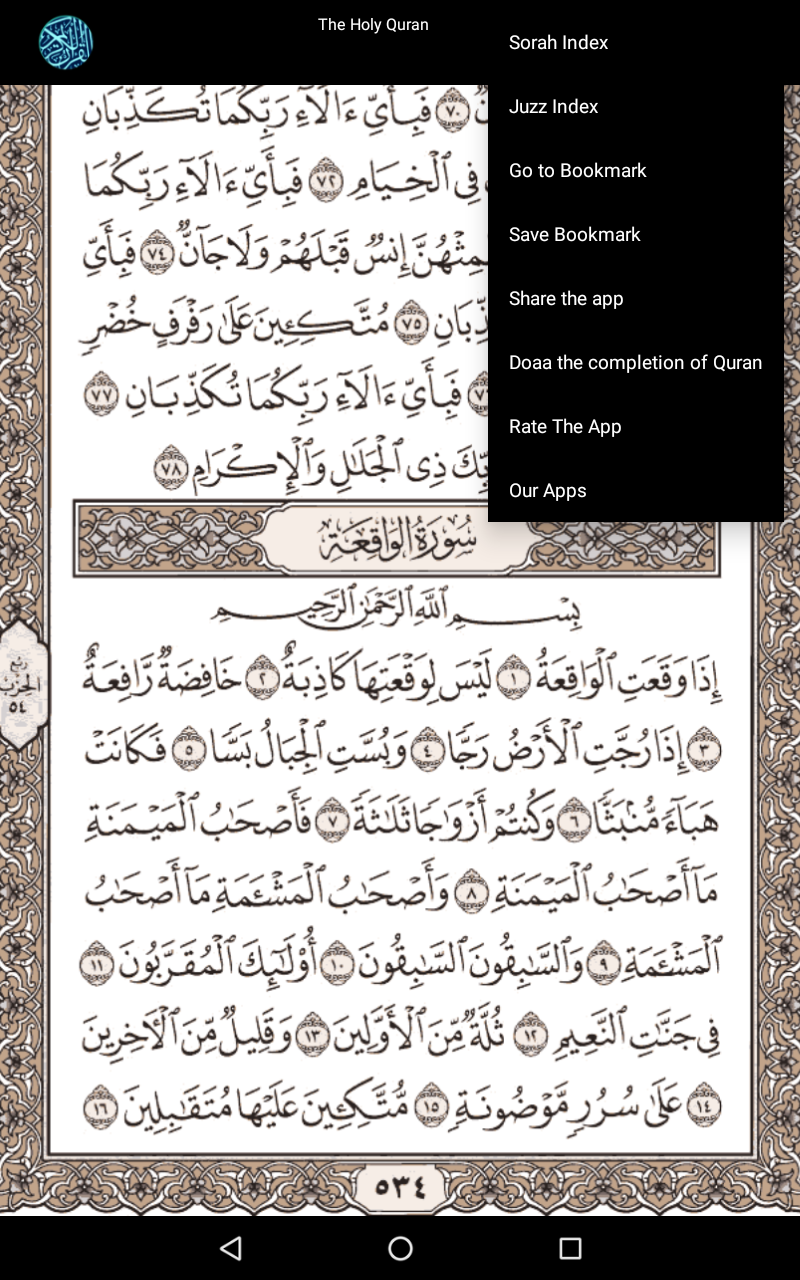 The Holy Quran
Sorah Index
Juzz Index
Go to Bookmark
Save Bookmark
Share the app
Doaa the completion of Quran
Rate The App
Our Apps
٧٠ فَبِأَيِّ ءَالَآءِ رَبِّكُمَا تُكَذِّبَانِ
فِى ٱلْخِيَامِ ٧٢ فَبِأَيِّ ءَالَآءِ رَبِّكُمَا
إِنسٌ قَبْلَهُمْ وَلَا جَآنٌّ ٧٤ فَبِأَيِّ
٧٥ مُتَّكِـِٔينَ عَلَىٰ رَفْرَفٍ خُضْرٍ
فَبِأَيِّ ءَالَآءِ رَبِّكُمَا تُكَذِّبَانِ ٧٧
ذِى ٱلْجَلَٰلِ وَٱلْإِكْرَامِ ٧٨
سُورَةُ الوَاقِعَةِ
بِسْمِ ٱللَّهِ ٱلرَّحْمَٰنِ ٱلرَّحِيمِ
إِذَا وَقَعَتِ ٱلْوَاقِعَةُ ١ لَيْسَ لِوَقْعَتِهَا كَاذِبَةٌ ٢ خَافِضَةٌ رَّافِعَةٌ
٣ إِذَا رُجَّتِ ٱلْأَرْضُ رَجًّا ٤ وَبُسَّتِ ٱلْجِبَالُ بَسًّا ٥ فَكَانَتْ
هَبَآءً مُّنۢبَثًّا ٦ وَكُنتُمْ أَزْوَٰجًا ثَلَٰثَةً ٧ فَأَصْحَٰبُ ٱلْمَيْمَنَةِ
مَآ أَصْحَٰبُ ٱلْمَيْمَنَةِ ٨ وَأَصْحَٰبُ ٱلْمَشْـَٔمَةِ مَآ أَصْحَٰبُ
ٱلْمَشْـَٔمَةِ ٩ وَٱلسَّٰبِقُونَ ٱلسَّٰبِقُونَ ١٠ أُو۟لَٰٓئِكَ ٱلْمُقَرَّبُونَ ١١
فِى جَنَّٰتِ ٱلنَّعِيمِ ١٢ ثُلَّةٌ مِّنَ ٱلْأَوَّلِينَ ١٣ وَقَلِيلٌ مِّنَ ٱلْءَاخِرِينَ
١٤ عَلَىٰ سُرُرٍ مَّوْضُونَةٍ ١٥ مُّتَّكِـِٔينَ عَلَيْهَا مُتَقَٰبِلِينَ ١٦
ربع
الحزب
٥٤
٥٣٤